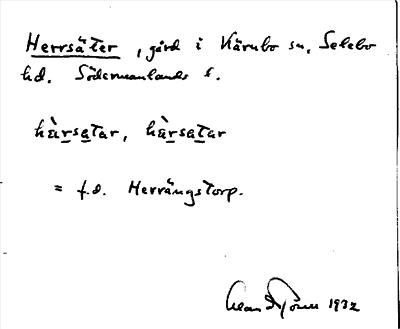 Herrsäter, gård i Kärnbo sn, Selebo
hd. Södermanlands l.
hä̀rsatar, hä̀rsatar
= f.d. Herrängstorp.
1932